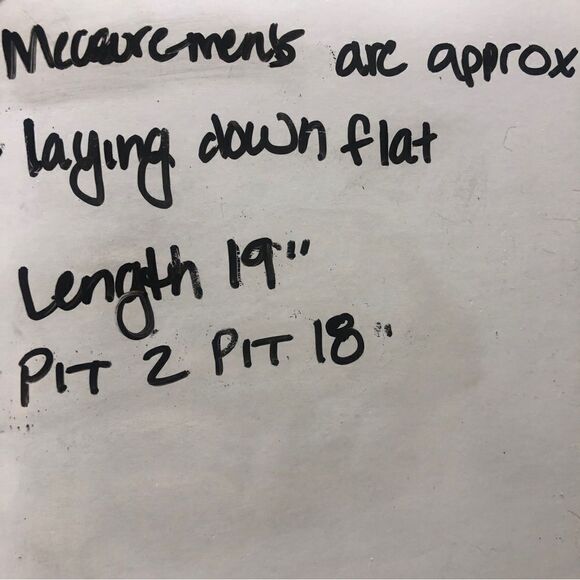 Measurements are approx
laying down flat
Length 19"
PIT 2 PIT 18"